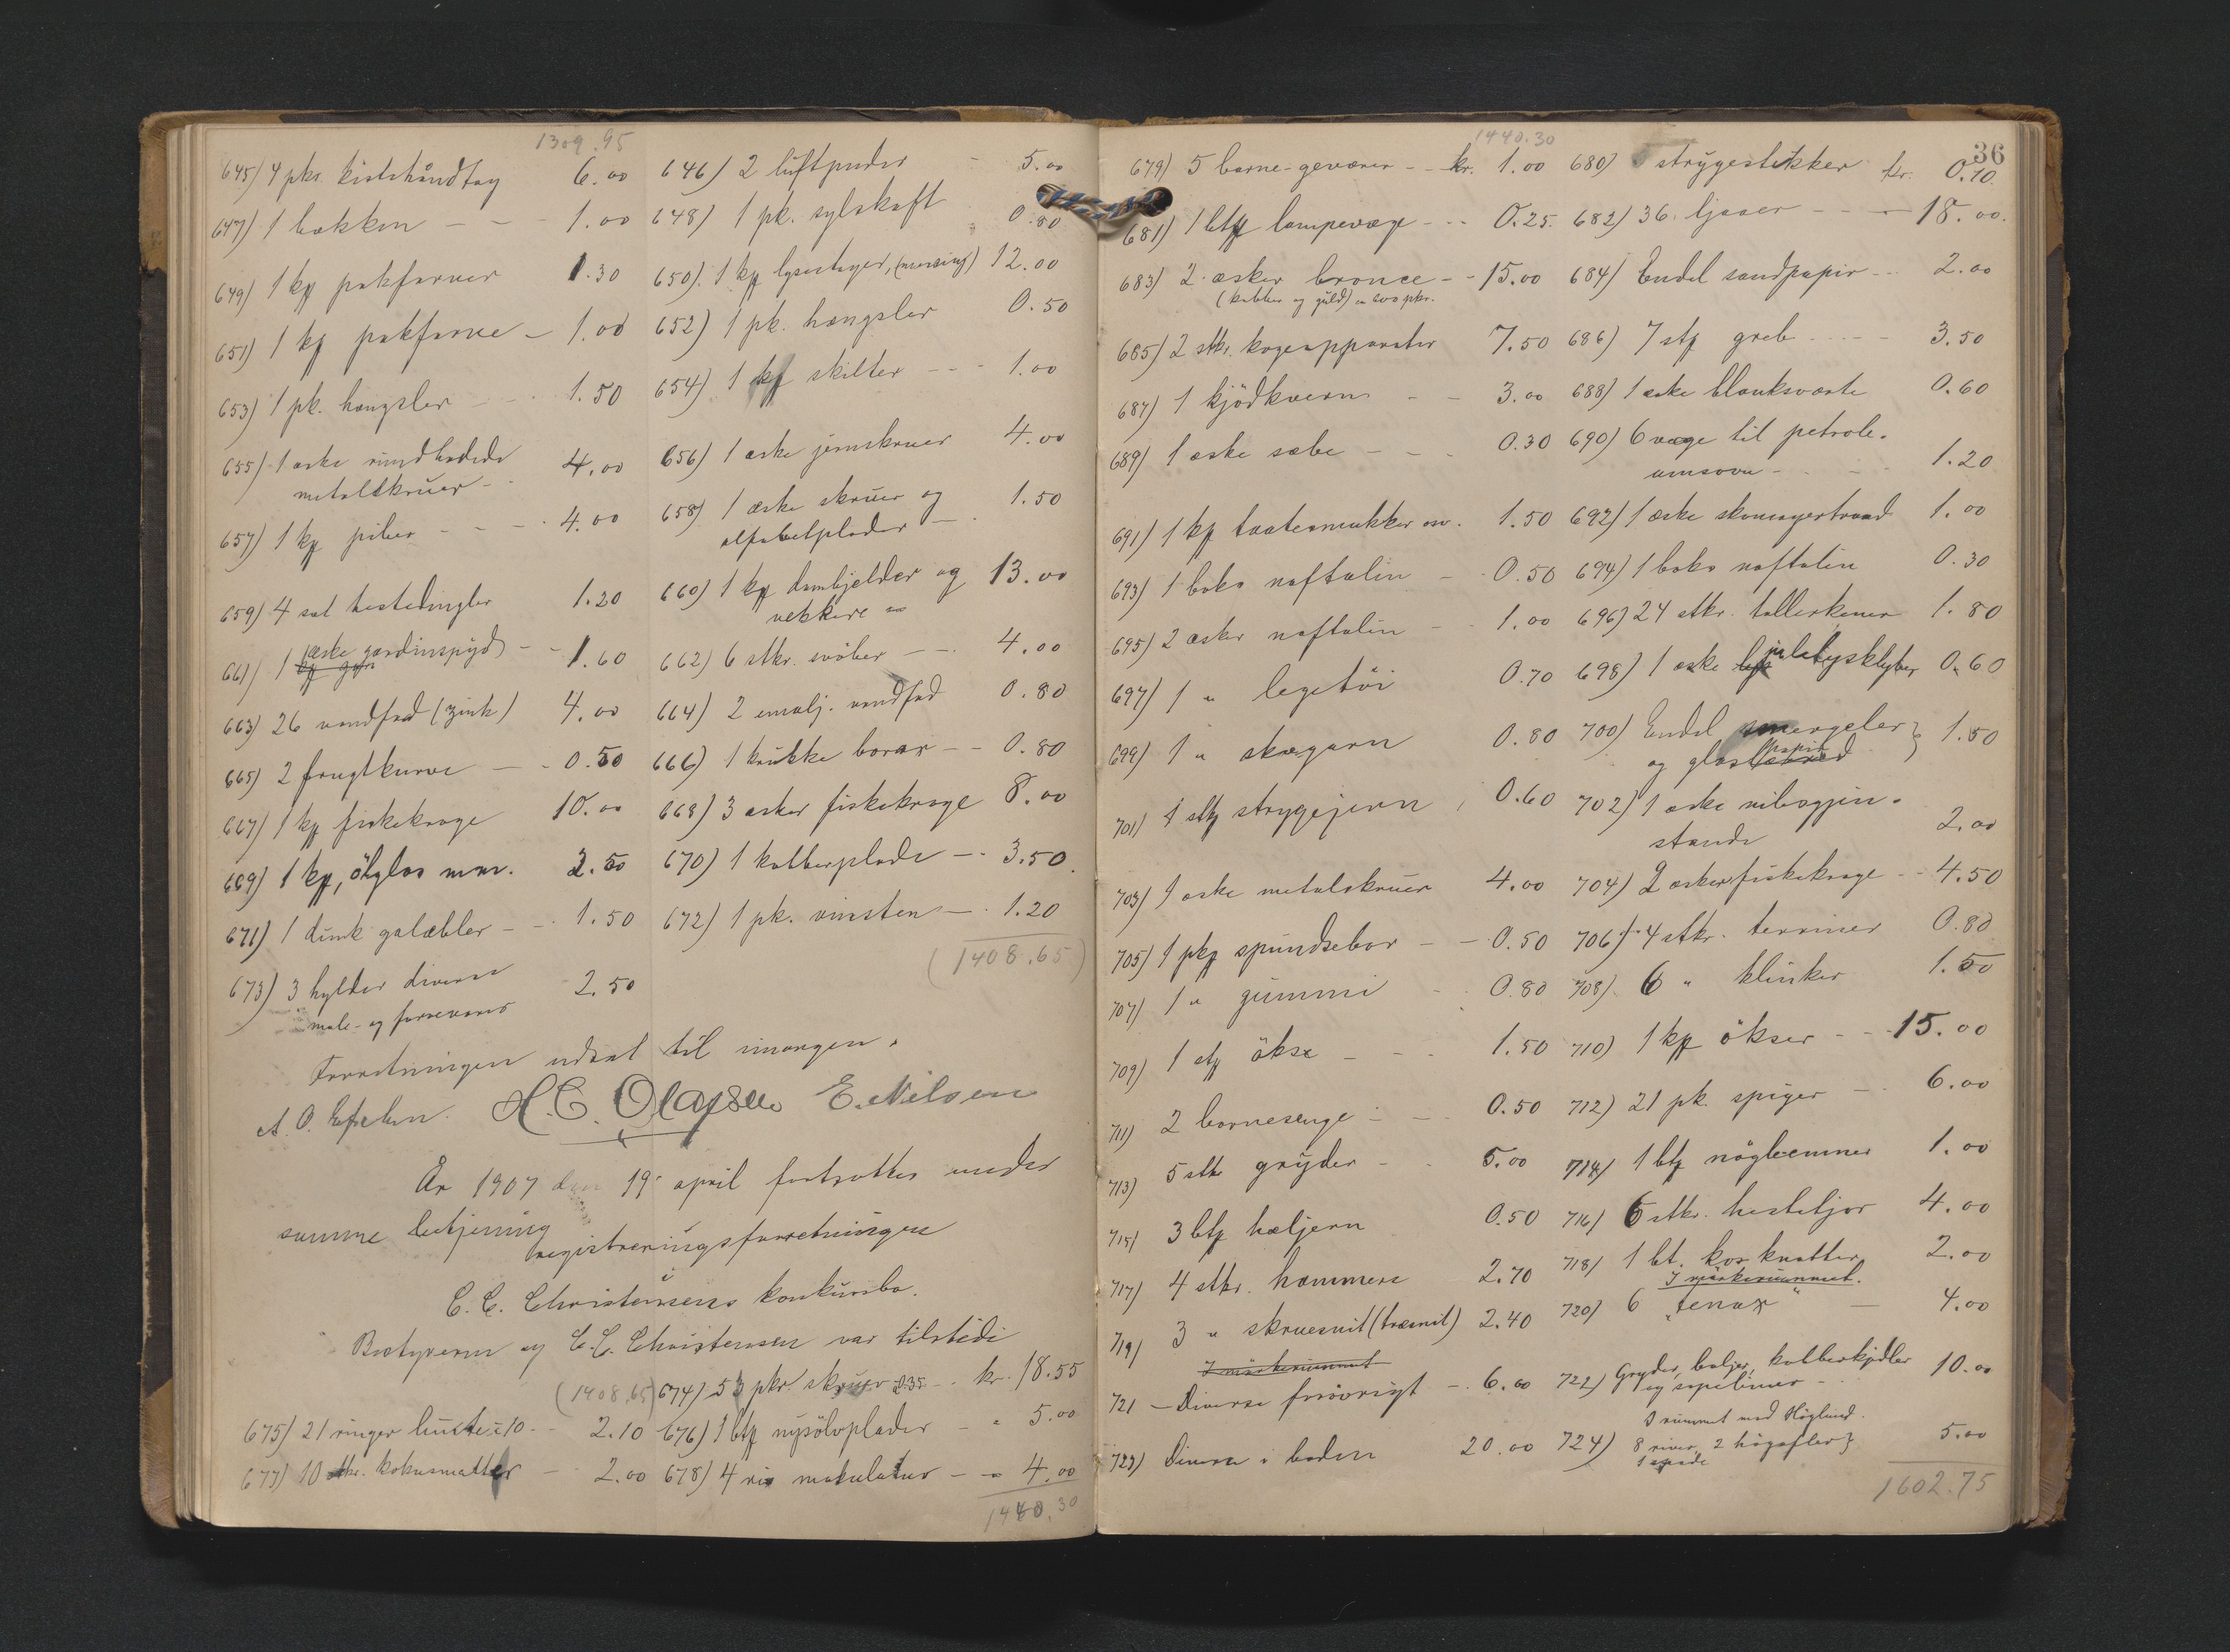 1309.95
645) 4 pkr. kistehåndtag 6.00 646) 2 luftpuder - 5.00
647) 1 bækken - - 1.00 648) 1 pk. sylskaft 0.80
649) 1 kp pakfarver 1.30 650) 1 kp lysestager, (messing) 12.00
651) 1 kp pakfarve - 1.00 652) 1 pk. hængsler 0.50
653) 1 pk. hængsler - - 1.50 654) 1 kp skilter - - - 1.00
655) 1 æske rundhodede
metalskruer - 4.00 656) 1 æske jernskruer 4.00
657) 1 kp piber - - - 4.00 658) 1 æske skruer og
alfabetplader - 1.50
659) 4 sæt hestedingler 1.20 660) 1 kp dombjelder og
vekkere 13.00
661) 1 æske gardinspyd - - 1.60 662) 6 stkr. svøber - - 4.00
663) 26 vandfad (zink) 4.00 664) 2 emalj. vandfad 0.80
665) 2 frugtkurve - - 0.50 666) 1 krukke borax - - 0.80
667) 1 kp fiskekroge 10.00 668) 3 æsker fiskekroge 8.00
669) 1 kp, ölglas mm. 2.50 670) 1 kobberplade - - 3.50
671) 1 dunk galæbler - - 1.50 672) 1 pk. vinsten - . 1.20
(1408.65)
673) 3 hylder diverse
male- og farvevarer 2.50
Forretningen udsat til imorgen.
H.C. Olaysen E. Nilsen
År 1907 den 19. april fortsattes med
samme betjening
registreringsforretningen
C. C. Christensens konkursbo.
Bostyreren og C.C. Christensen var tilstede
(1408.65) 674) 53 pkr. skruer à 35 - . kr. 18.55
675) 21 ringer lunte à 10 - - 2.10 676) 1 btp nysölvplader - " 5.00
677) 10 stkr. kokusmatter - 2.00 678) 4 ris makulatur - " 4.00
1440.30
36
1440.30
679) 5 barne-geværer - - kr. 1.00 680) strygestikker kr. 0.10
681) 1 btp lampevæge - - - 0.25. 682) 36 ljaaer - - - 18.00.
683) 2 æsker bronce - - 15.00 684) Endel sandpapir - - 2.00
(kobber og guld) 200 pkr.
685) 2 stkr. kogeapparater 7.50 686) 7 stp greb - - - - 3.50
687) 1 kjödkvern - - 3.00 688) 1 æske blanksværte 0.60
689) 1 æske sæbe - - - 0.30 690) 6 væge til petrole-
umsovn - - - 1.20
691) 1 kp taatesmukker osv. 1.50 692) 1 æske skomagertraad 1.00
693) 1 boks naftalin - - 0.50 694) 1 boks naftalin 0.30
695) 2 æsker naftalin - - 1.00 696) 24 stkr. tallerkener 1.80
697) 1 " legetöi 0.70 698) 1 æske julelysklyper 0.60
699) 1 " skægarn 0.80 700) Endel smergeler
og glaspapir } 1.50
701) 1 stp strygejern 0.60 702) 1 æske nibsgjen-
stande 2.00
703) 1 æske metalskruer 4.00 704) 2 æsker fiskekroge - - 4.50
705) 1 pkp spundsebor - - 0.50 706) 4 stkr. terriner 0.80
707) 1 " gummi - 0.80 708) 6 " klinker 1.50
709) 1 stp ökse - - - 1.50 710) 1 kp ökser - - - 15.00
711) 2 barnesenge - - 0.50 712) 21 pk. spiger - - 6.00
713) 5 stk gryder - - 5.00 714) 1 btp nöglemner 1.00
715) 3 btp hæljern 0.50 716) 6 stkr. hestetjor 4.00
717) 4 stkr. hammere 2.70 718) 1 bt. koskratter 2.00
I mörkerummet.
719) 3 " skruesnit (træsnit) 2.40 720) 6 "Tenax" - 4.00
I mörkerummet
721 - Diverse forövrigt - . 6.00 722) Gryder, baljer, kobberkjedler
og sopelimer - - 10.00
I rummet mod Höglund.
723) Diverse i boden 20.00 724) 8 river, 2 högafler }
1 spade 5.00
1602.75